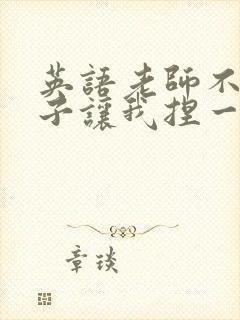 英語老師不
子讓我捏一
章琰